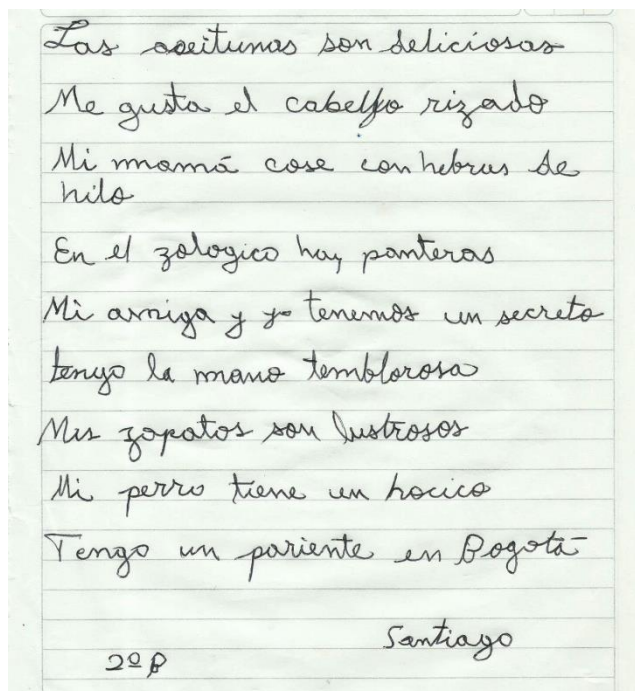 Las aceitunas son deliciosas
Me gusta el cabello rizado
Mi mamá cose con hebras de
hilo
En el zologico hay panteras
Mi amiga y yo tenemos un secreto
tengo la mano temblorosa
Mis zapatos son lustrosos
Mi perro tiene un hocico
Tengo un pariente en Bogotá
Santiago
2º B